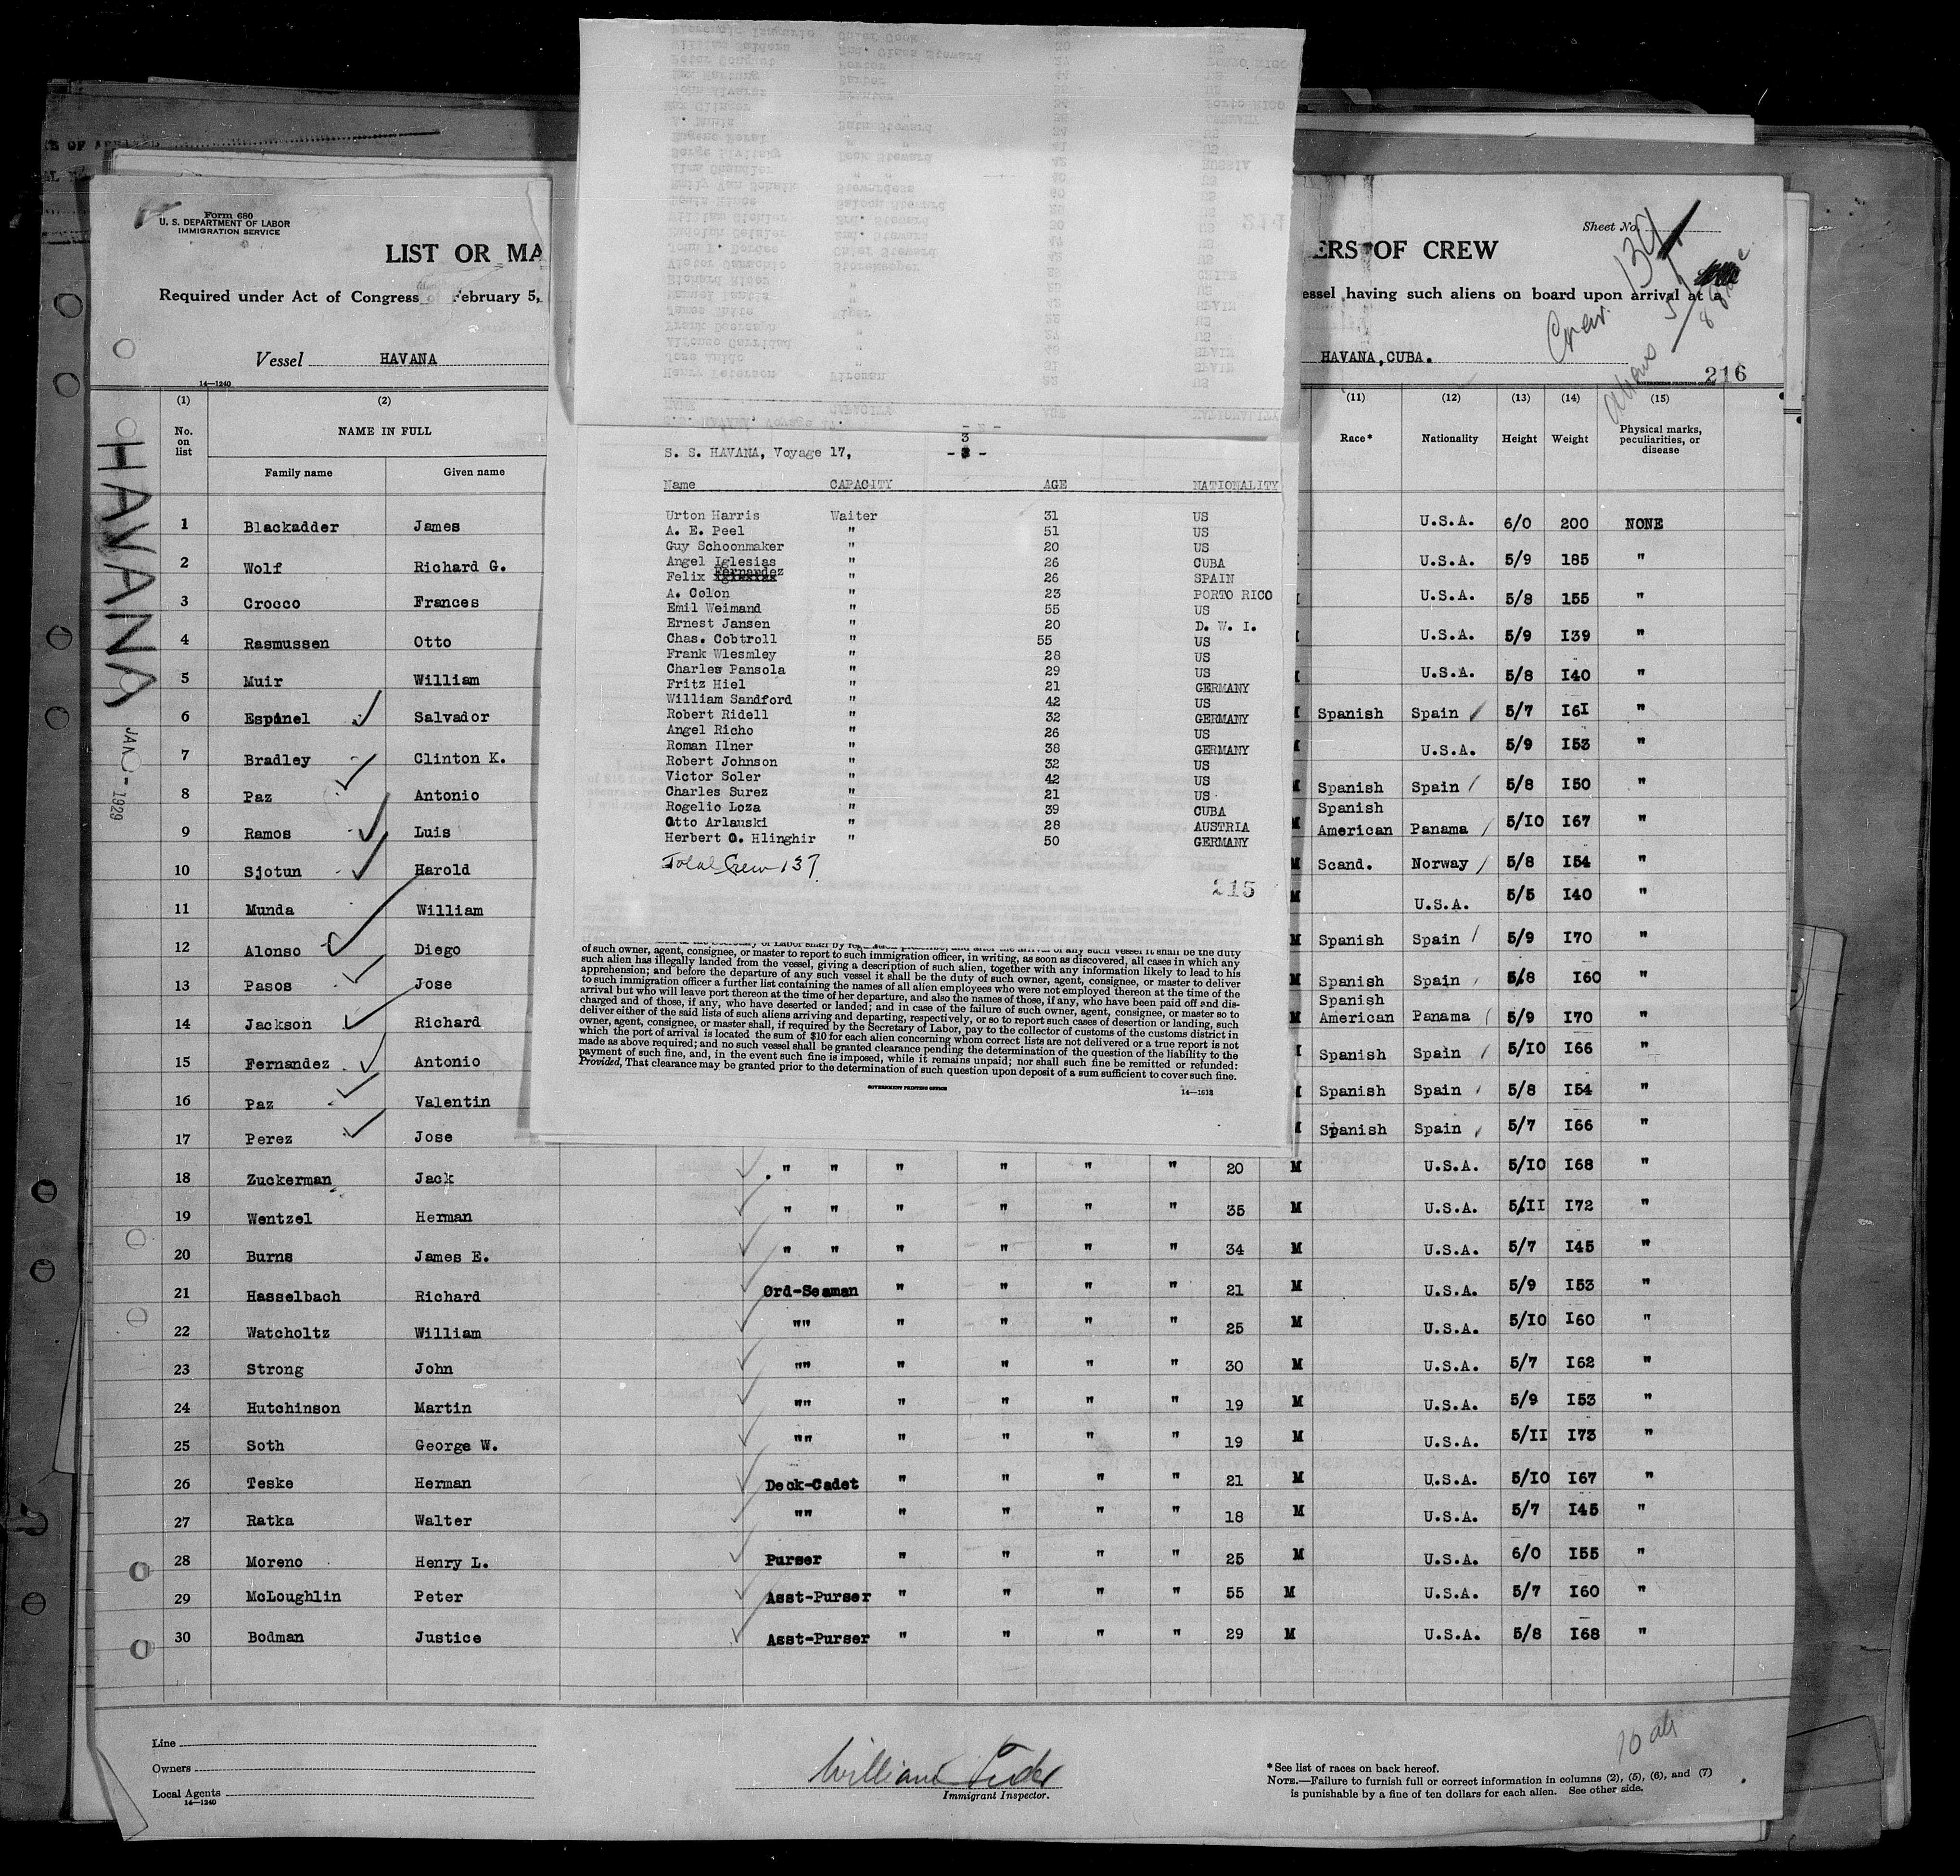 Form 680
U. S. DEPARTMENT OF LABOR
IMMIGRATION SERVICE
LIST OR MA
ERS OF CREW
Sheet No.
Required under Act of Congress of February 5,
essel having such aliens on board upon arrival at a
Vessel HAVANA
HAVANA, CUBA.
Crew 137
aliens
216
14—1240
GOVERNMENT PRINTING OFFICE
HAVANA
1929
S. S. HAVANA, Voyage 17,
3
Name CAPACITY AGE NATIONALITY
Urton Harris Waiter 31 US
A. E. Peel " 51 US
Guy Schoonmaker " 20 US
Angel Iglesias " 26 CUBA
Felix Fernandez " 26 SPAIN
A. Colon " 23 PORTO RICO
Emil Weimand " 55 US
Ernest Jansen " 20 D. W. I.
Chas. Cobtroll " 55 US
Frank Wlesmley " 28 US
Charles Pansola " 29 US
Fritz Hiel " 21 GERMANY
William Sandford " 42 US
Robert Ridell " 32 GERMANY
Angel Richo " 26 US
Roman Ilner " 38 GERMANY
Robert Johnson " 32 US
Victor Soler " 42 US
Charles Surez " 21 US
Rogelio Loza " 39 CUBA
Otto Arlauski " 28 AUSTRIA
Herbert O. Hlinghir " 50 GERMANY
Total Crew 137
215
of such owner, agent, consignee, or master to report to such immigration officer, in writing, as soon as discovered, all cases in which any
such alien has illegally landed from the vessel, giving a description of such alien, together with any information likely to lead to his
apprehension; and before the departure of any such vessel it shall be the duty of such owner, agent, consignee, or master to deliver
to such immigration officer a further list containing the names of all alien employees who were not employed thereon at the time of the
arrival but who will leave port thereon at the time of her departure, and also the names of those, if any, who have been paid off and dis-
charged and of those, if any, who have deserted or landed; and in case of the failure of such owner, agent, consignee, or master so to
deliver either of the said lists of such aliens arriving and departing, respectively, or so to report such cases of desertion or landing, such
owner, agent, consignee, or master shall, if required by the Secretary of Labor, pay to the collector of customs of the customs district in
which the port of arrival is located the sum of $10 for each alien concerning whom correct lists are not delivered or a true report is not
made as above required; and no such vessel shall be granted clearance pending the determination of the question of the liability to the
payment of such fine, and, in the event such fine is imposed, while it remains unpaid; nor shall such fine be remitted or refunded:
Provided, That clearance may be granted prior to the determination of such question upon deposit of a sum sufficient to cover such fine.
GOVERNMENT PRINTING OFFICE
14—1613
(1) (2) (11) (12) (13) (14) (15)
No. on list NAME IN FULL Race* Nationality Height Weight Physical marks, peculiarities, or disease
Family name Given name
1 Blackadder James U.S.A. 6/0 200 NONE
2 Wolf Richard G. U.S.A. 5/9 185 "
3 Crocco Frances U.S.A. 5/8 155 "
4 Rasmussen Otto U.S.A. 5/9 I39 "
5 Muir William U.S.A. 5/8 I40 "
6 Espinel Salvador Spanish Spain 5/7 I6I "
7 Bradley Clinton K. U.S.A. 5/9 I53 "
8 Paz Antonio M Spanish Spain 5/8 I50 "
9 Ramos Luis M Spanish American Panama 5/IO I67 "
10 Sjotun Harold M Scand. Norway 5/8 I54 "
11 Munda William M U.S.A. 5/5 I40 "
12 Alonso Diego M Spanish Spain 5/9 I70 "
13 Pasos Jose M Spanish Spain 5/8 I60 "
14 Jackson Richard M Spanish American Panama 5/9 I70 "
15 Fernandez Antonio Spanish Spain 5/IO I66 "
16 Paz Valentin Spanish Spain 5/8 I54 "
17 Perez Jose Spanish Spain 5/7 I66 "
18 Zuckerman Jack " " " " " " 20 M U.S.A. 5/IO I68 "
19 Wentzel Herman " " " " " " 35 M U.S.A. 5/II I72 "
20 Burns James E. " " " " " " 34 M U.S.A. 5/7 I45 "
21 Hasselbach Richard Ord-Seaman " " " " 21 M U.S.A. 5/9 I53 "
22 Watcholtz William "" " " " " 25 M U.S.A. 5/IO I60 "
23 Strong John "" " " " " 30 M U.S.A. 5/7 I62 "
24 Hutchinson Martin "" " " " " 19 M U.S.A. 5/9 I53 "
25 Soth George W. "" " " " " 19 M U.S.A. 5/II I73 "
26 Teske Herman Deck-Cadet " " " " 21 M U.S.A. 5/IO I67 "
27 Ratka Walter "" " " " " 18 M U.S.A. 5/7 I45 "
28 Moreno Henry L. Purser " " " " 25 M U.S.A. 6/0 I55 "
29 McLoughlin Peter Asst-Purser " " " " 55 M U.S.A. 5/7 I60 "
30 Bodman Justice Asst-Purser " " " " 29 M U.S.A. 5/8 I68 "
Line
Owners
Local Agents
14—1240
William
Immigrant Inspector.
10
*See list of races on back hereof.
NOTE.—Failure to furnish full or correct information in columns (2), (5), (6), and (7)
is punishable by a fine of ten dollars for each alien. See other side.